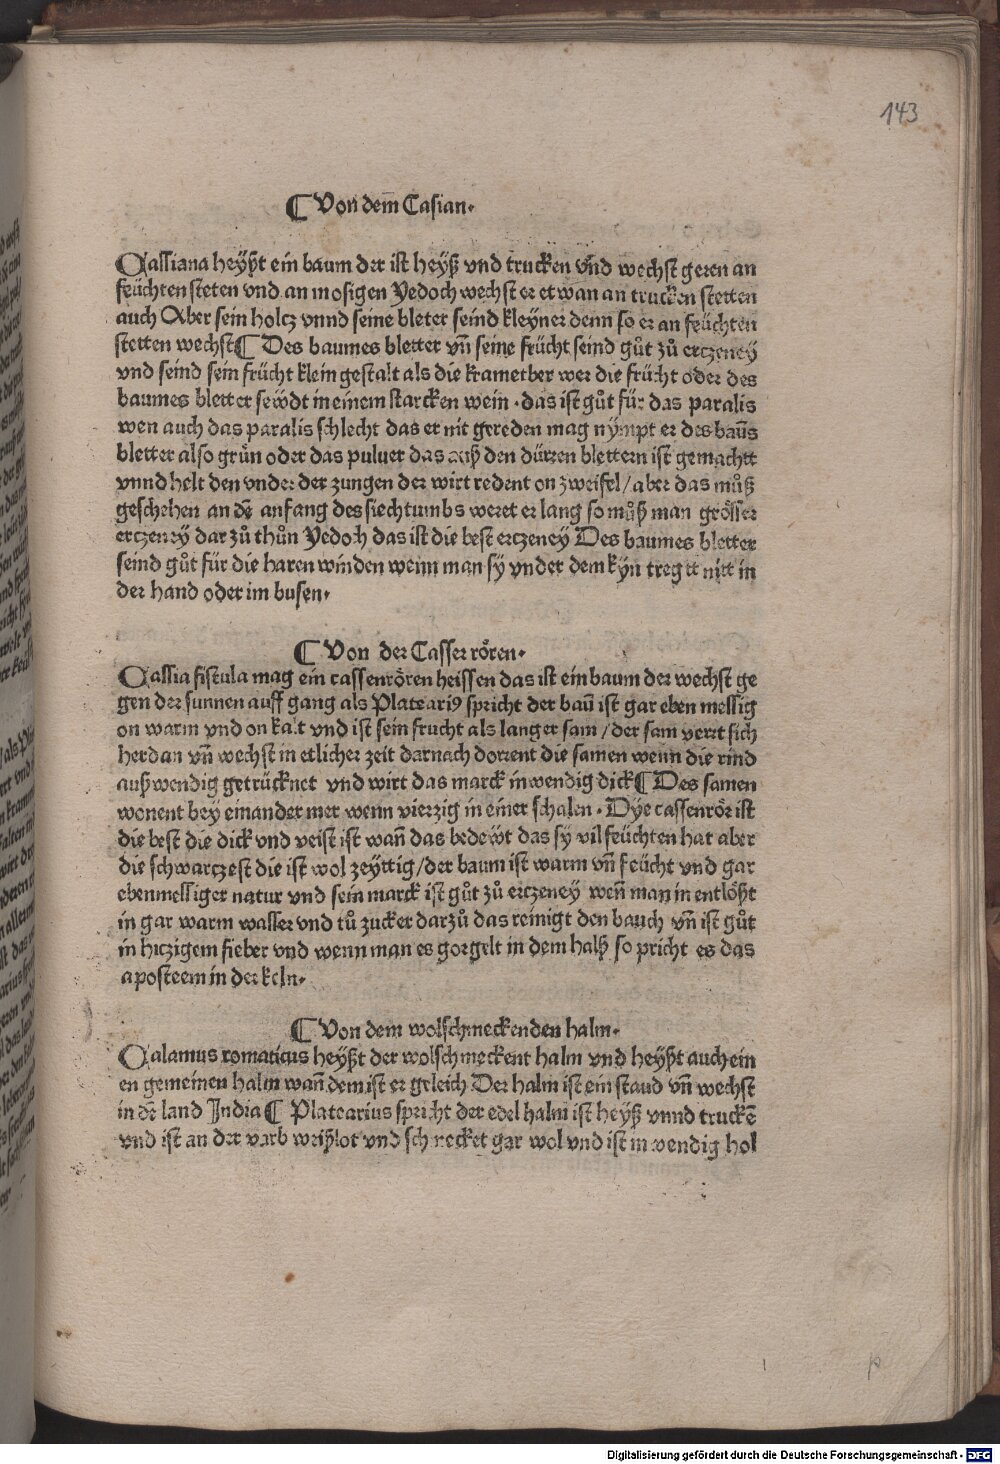 143
¶ Von dem̄ Casian.
Cassiana heyßt ein baum der ist heyß vnd trucken vn̄d wechst geren an
feüchten steten vnd an mosigen Yedoch wechst er etwan an trucken stetten
auch Aber sein holcz vnnd seine bleter seind kleyner denn so er an feüchten
stetten wechst¶ Des baumes bletter vn̄ seine frücht seind gůt zů erczeney
vnd seind sein frücht klein gestalt als die krametber wer die frücht oder des
baumes bletter seẅdt in einem starcken wein . das ist gůt für das paralis
wen auch das paralis schlecht das er nit gereden mag nympt er des baūs
bletter also grün oder das puluer das auß den dürren blettern ist gemachtt
vnnd helt den vnder der zungen der wirt redent on zweifel/ aber das můß
geschehen an dē anfang des siechtumbs weret er lang so můß man grösser
erczeney dar zů thůn Yedoch das ist die best erczeney Des baumes bletter
seind gůt für die haren winden wenn man sy vnder dem kyn tregtt nitt in
der hand oder im busen.
¶ Von der Casser rören.
Cassia fistula mag ein cassenrören heissen das ist ein baum der wechst ge
gen der sunnen auff gang als Plateariꝰ spricht der baū ist gar eben messig
on warm vnd on kalt vnd ist sein frucht als langer sam / der sam verit sich
herdan vn̄ wechst in etlicher zeit darnach dorrent die samen wenn die rind
außwendig getrücknet vnd wirt das marck inwendig dick¶ Des samen
wonent bey einander mer wenn vierzig in einer schalen . Dye cassenrör ist
die best die dick vnd veist ist wan̄ das bedeẅt das sy vil feüchten hat aber
die schwarczest die ist wol zeyttig/ der baum ist warm vn̄ feücht vnd gar
ebenmessiger natur vnd sein marck ist gůt zů erczeney wen̄ man in entlößt
in gar warm wasser vnd tů zucker darzů das reinigt den bauch vn̄ ist gůt
in hiczigem fieber vnd wenn man es gorgelt in dem halß so pricht es das
aposteem in der keln.
¶ Von dem wolschmeckenden halm.
Calamus romaticus heyßt der wolschmeckent halm vnd heyßt auch ein
en gemeinen halm wan̄ dem ist er geleich Der halm ist ein staud vn̄ wechst
in dē land India¶ Platearius spricht der edel halm ist heyß vnnd truckē
vnd ist an der varb weißlot vnd schmecket gar wol vnd ist inwendig hol
Digitalisierung gefördert durch die Deutsche Forschungsgemeinschaft - DFG